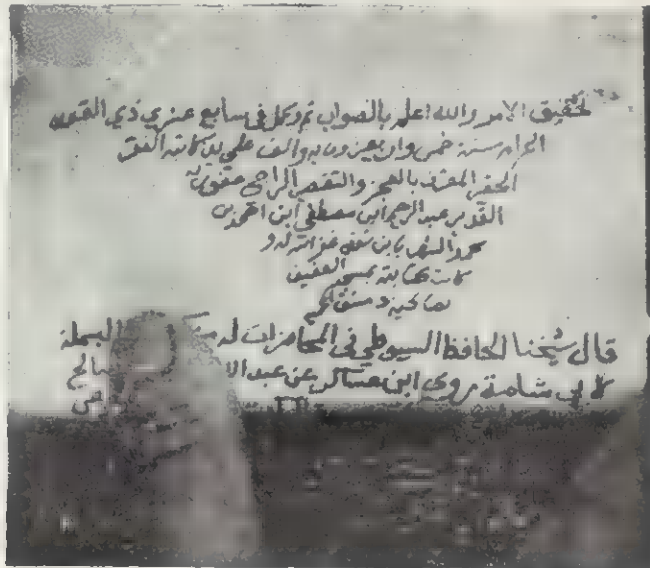 لتحقيق الامر والله اعلم بالصواب تم وكمل في سابع عشري ذي القعدة
الحرام سنة خمس واربعين وماية والف على يد كاتبه الفقير
الحقير المعترف بالعجز والتقصير الراجي عفو ربه
القدير عبد الرحيم ابن مصطفى ابن احمد بن
محمد الشهير بابن غفر الله له و
كانت كتابته بمسجد العفيف
بصالحية دمشق
قال شيخنا الحافظ السيوطي في المحاضرات له البسملة
لابي شامة روي ابن عساكر عن عبد صالح